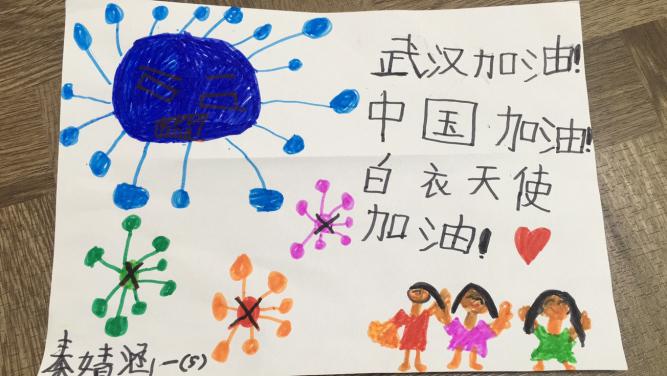 武汉加油!
中国加油!
白衣天使
加油!
秦婧涵 一(5)